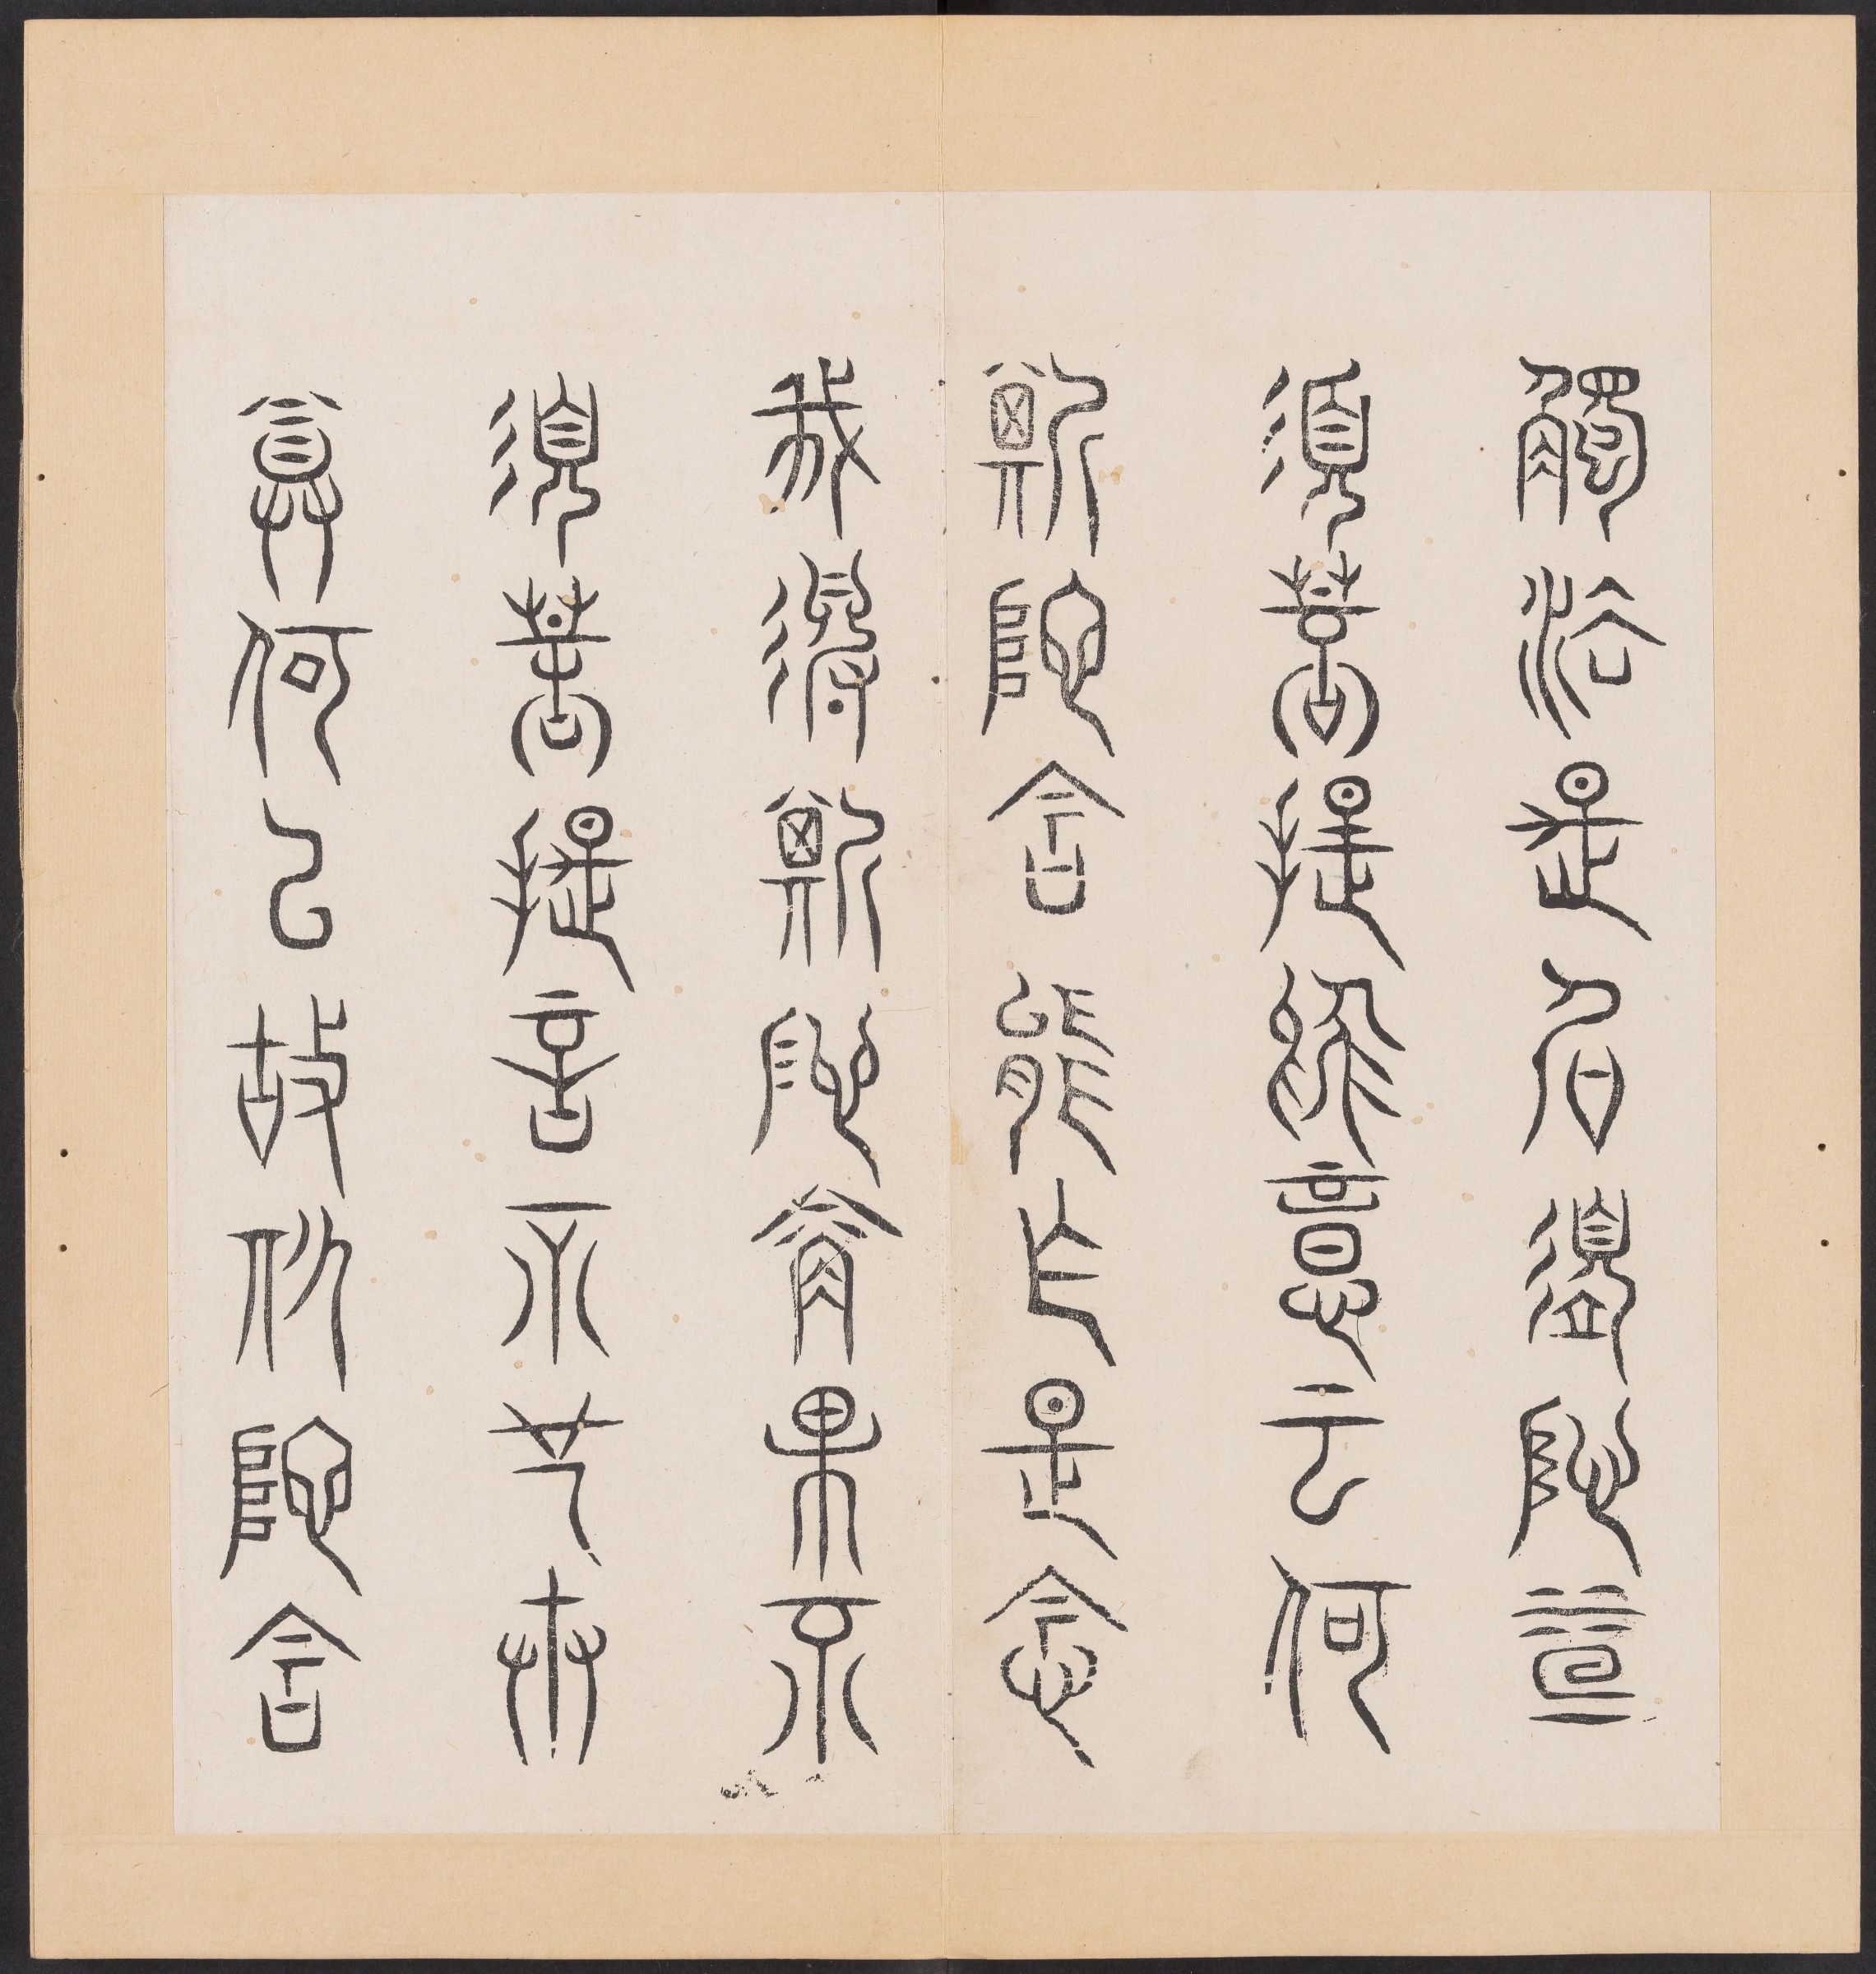 觸法是名須陀洹
須菩提於意云何
斯陀含能作是念
我得斯陀含果不
須菩提言不也世
尊何以故斯陀含